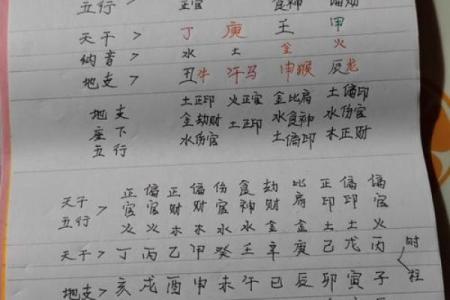 五行> 正官 食神 偏财
天干> 丁 庚 壬 甲
纳音> 水 土 金 火
地支> 丑牛 午马 申猴 辰龙
土正印 火正官 金比肩 土偏印
地支 金劫财 土正印 水食神 水伤官
座下 水伤官 土偏印 木正财
五行
正 偏 正 偏 伤 食 劫 比 正 偏 偏
天干> 官 官 财 财 官 神 财 肩 印 印 官
五行 火 火 木 木 水 水 金 金 土 土 火
天干> 丁 丙 乙 甲 癸 壬 辛 庚 己 戊 丙 时
地支> 亥 戌 酉 申 未 午 巳 辰 卯 寅 子 柱